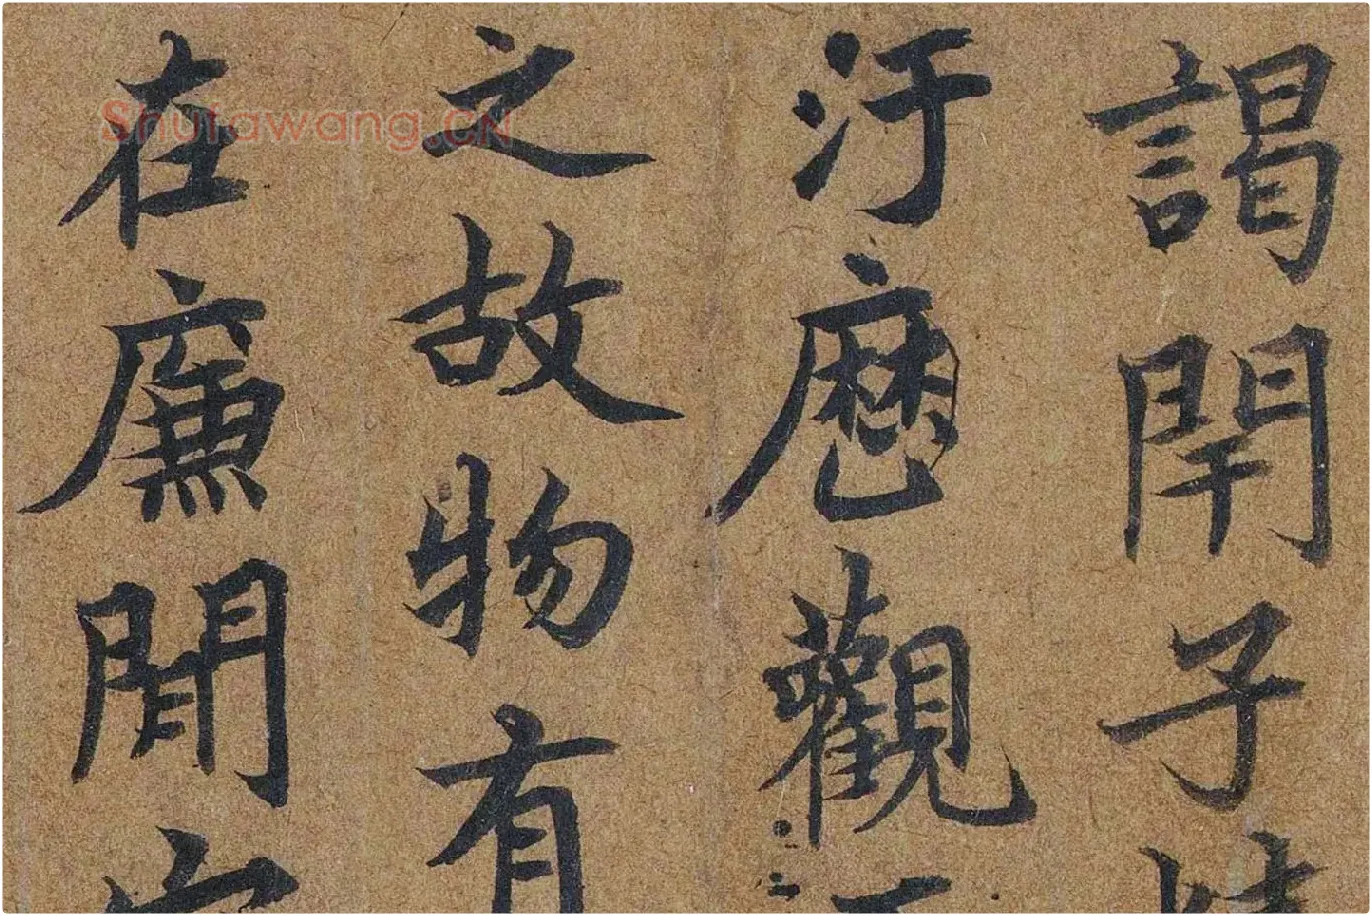 謁閈子
汙歷觀
之故物有
在廉閒
Shufawang.CN